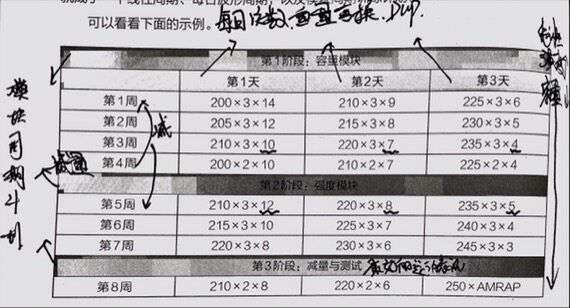 可以看看下面的示例。
第1阶段：容量模块
第1天 第2天 第3天
第1周 200×3×14 210×3×9 225×3×6
第2周 205×3×12 215×3×8 230×3×5
第3周 210×3×10 220×3×7 235×3×4
第4周 200×2×10 210×2×7 225×2×4
第2阶段：强度模块
第5周 210×3×12 220×3×8 235×3×5
第6周 215×3×10 225×3×7 240×3×4
第7周 220×3×8 230×3×6 245×3×3
第3阶段：减量与测试
第8周 210×2×8 220×2×6 250×AMRAP
模块周期计划
减
减量